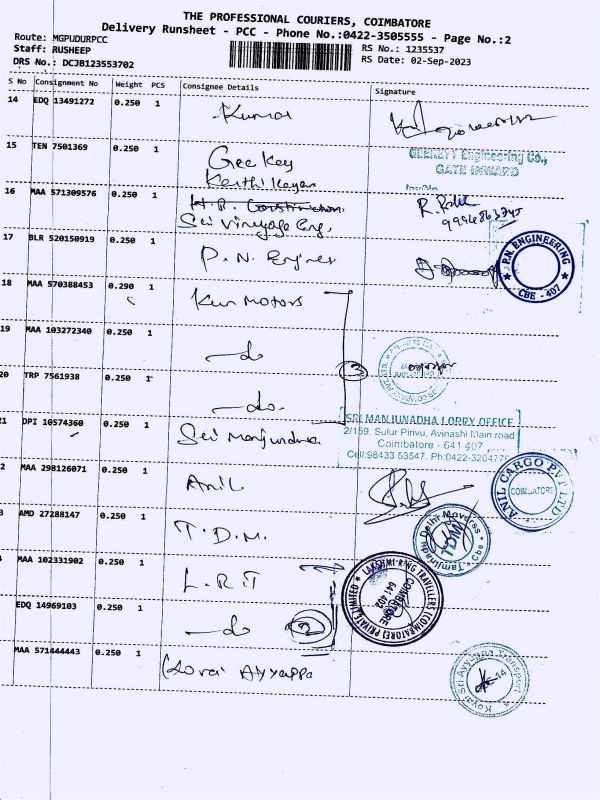 THE PROFESSIONAL COURIERS, COIMBATORE
Delivery Runsheet - PCC - Phone No.:0422-3505555 - Page No.:2
Route: MGPUDURPCC
RS No.: 1235537
Staff: RUSHEEP
RS Date: 02-Sep-2023
DRS No.: DCJB123553702
S No Consignment No Weight PCS Consignee Details Signature
14 EDQ 13491272 0.250 1 Kumar
15 TEN 7501369 0.250 1 Geekey
Keerthikeyan
GATE INWARD
16 MAA 571309576 0.250 1 H.R. Construction
Sri Vinayaga Eng.
17 BLR 520150919 0.250 1 P.N. Engineer
P.N. ENGINEERING
CBE - 407
18 MAA 570388453 0.290 1 Kun Motors
19 MAA 103272340 0.250 1 -do
3
20 TRP 7561938 0.250 1 -do.
21 DPI 10574360 0.250 1 Sri Manjunadha
SRI MANJUNADHA LORRY OFFICE
2/159, Sulur Pirivu, Avinashi Main road
Coimbatore - 641 407
Cell:98433 53547, Ph:0422-3204776
2 MAA 298126071 0.250 1 Anil
ANIL CARGO PVT LTD
COIMBATORE
3 AMD 27288147 0.250 1 T.D.M.
Tamilnadu Delhi Movers Cbe
TDM
MAA 102331902 0.250 1 L.R.T
LAKSHMI RING TRAVELLERS (COIMBATORE) PRIVATE LIMITED
COIMBATORE
641 402
EDQ 14969103 0.250 1 -do 2
MAA 571444443 0.250 1 Kovai Ayyappa
Kovai Sri Ayyappa Transport